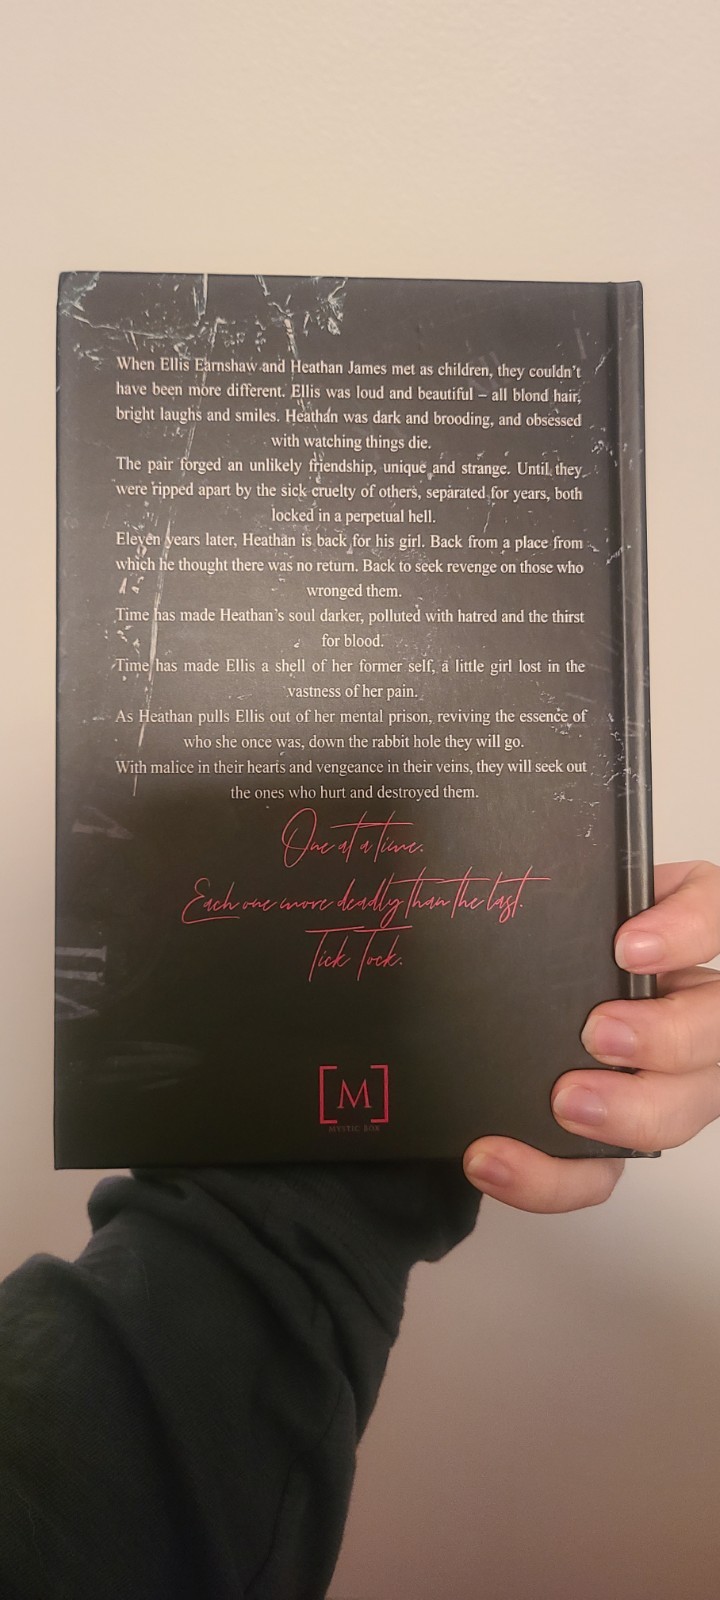 When Ellis Earnshaw and Heathan James met as children, they couldn't
have been more different. Ellis was loud and beautiful – all blond hair,
bright laughs and smiles. Heathan was dark and brooding, and obsessed
with watching things die.
The pair forged an unlikely friendship, unique and strange. Until they
were ripped apart by the sick cruelty of others, separated for years, both
locked in a perpetual hell.
Eleven years later, Heathan is back for his girl. Back from a place from
which he thought there was no return. Back to seek revenge on those who
wronged them.
Time has made Heathan's soul darker, polluted with hatred and the thirst
for blood.
Time has made Ellis a shell of her former self, a little girl lost in the
vastness of her pain.
As Heathan pulls Ellis out of her mental prison, reviving the essence of
who she once was, down the rabbit hole they will go.
With malice in their hearts and vengeance in their veins, they will seek out
the ones who hurt and destroyed them.
One at a time.
Each one more deadly than the last.
Tick Tock.
VII
[M]
MYSTIC BOX